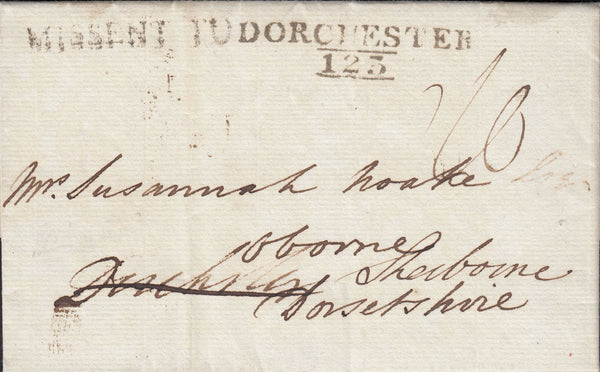 MISSENT TO DORCHESTER
125
Mrs. Susannah Noake
Oborne
Sherborne
Dorsetshire